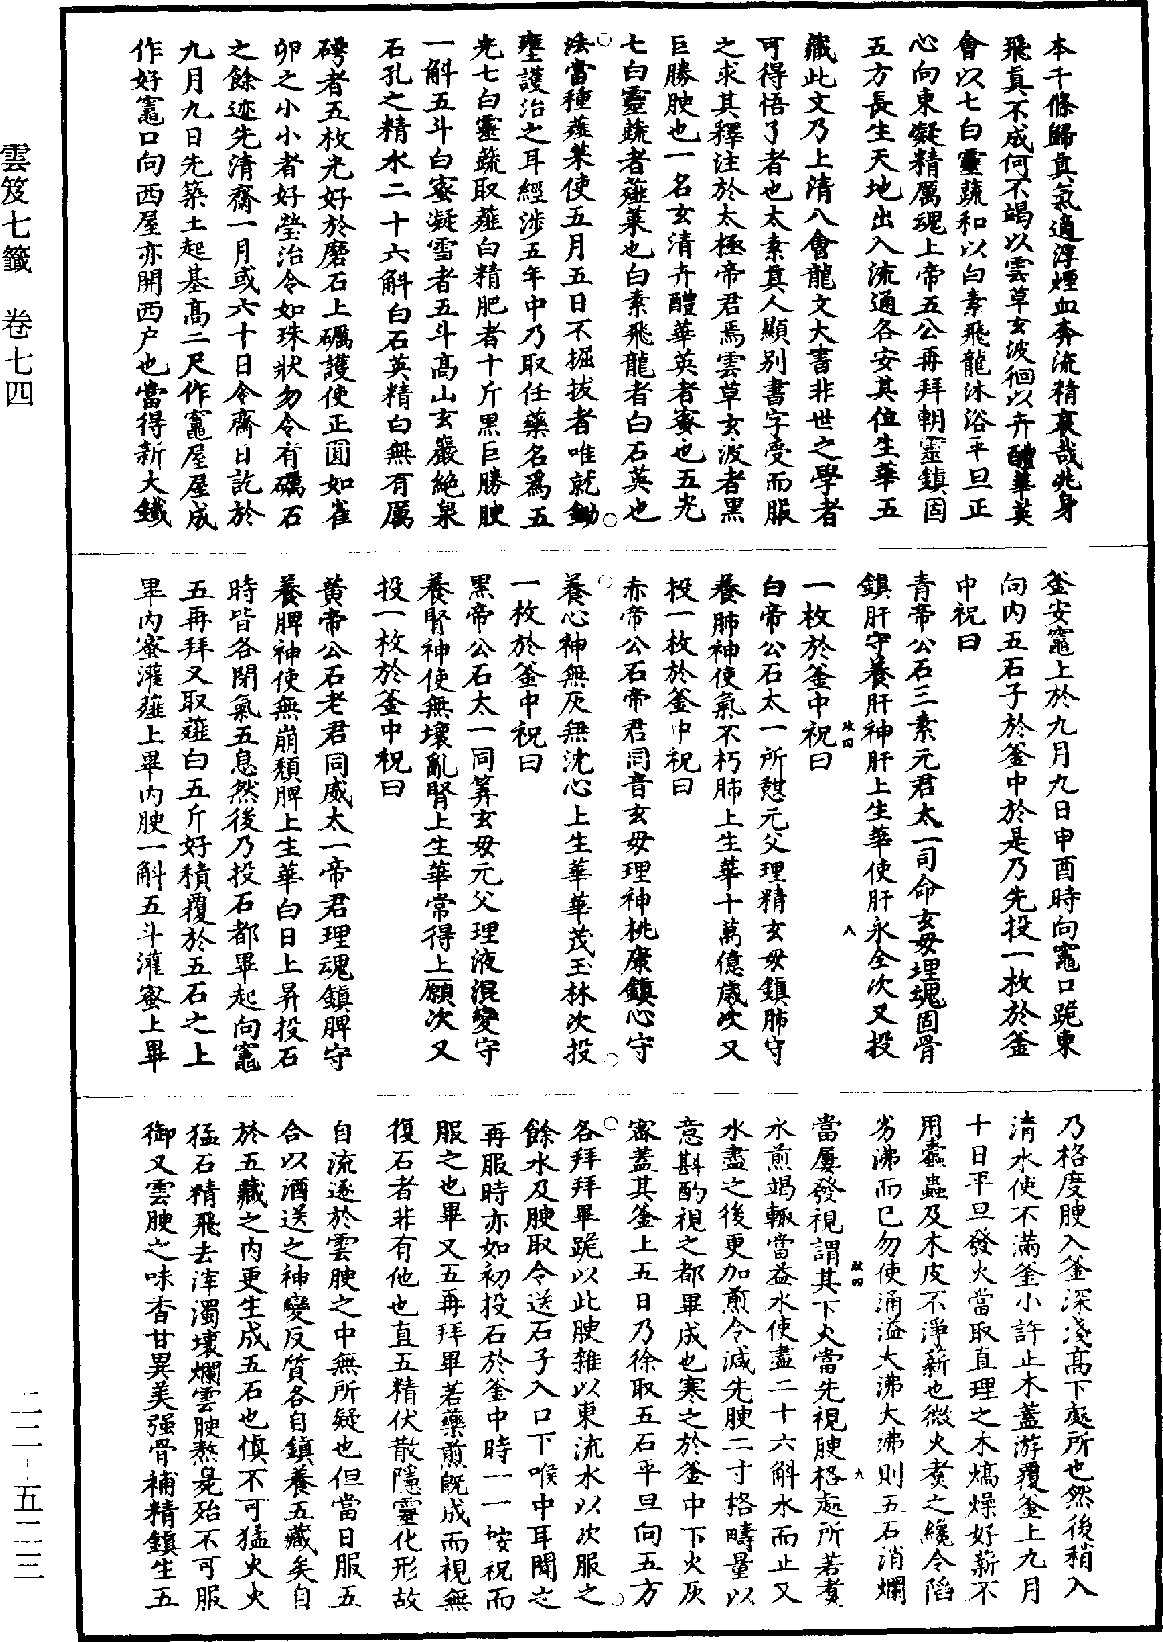 本千條歸真氣適浮煙血奔流精哀哉兆身
飛真不成何不竭以雲草玄波徊以卉醴華英
會以七白靈蔬和以白素飛龍沐浴平旦正
心向東凝精厲魂上帝五公再拜朝靈鎮固
五方長生天地出入流通各安其位生華五
藏此文乃上清八會龍文大書非世之學者
可得悟了者也太素真人顯別書字受而服
之求其釋注於太極帝君焉雲草玄波者黑
巨勝腴也一名玄清卉醴華英者蜜也五光
七白靈蔬者薤菜也白素飛龍者白石英也
法當種薤菜使五月五日不掘拔者唯就鋤
壅護治之耳經涉五年中乃取任藥名為五
光七白靈蔬取薤白精肥者十斤黑巨勝腴
一斛五斗白蜜凝雪者五斗高山玄巖絕泉
石孔之精水二十六斛白石英精白無有厲
礙者五枚光好於磨石上礪護使正圓如雀
卵之小小者好瑩治令如珠狀勿令有礪石
之餘迹先清齋一月或六十日令齋日訖於
九月九日先築土起基高二尺作竈屋屋成
作好竈口向西屋亦開西户也當得新大鐵
釜安竈上於九月九日申酉時向竈口跪東
向內五石子於釜中於是乃先投一枚於釜
中祝曰
青帝公石三素元君太一司命玄母理魂固骨
鎮肝守養肝神肝上生華使肝永全次又投
一枚於釜中祝曰
白帝公石太一所憩元父理精玄母鎮肺守
養肺神使氣不朽肺上生華十萬億歲次又
投一枚於釜中祝曰
赤帝公石帝君同音玄母理神桃康鎮心守
養心神無灰無沈心上生華華茂玉林次投
一枚於釜中祝曰
黑帝公石太一同筭玄母元父理液混變守
養腎神使無壞亂腎上生華常得上願次又
投一枚於釜中祝曰
黄帝公石老君同威太一帝君理魂鎮脾守
養脾神使無崩頹脾上生華白日上昇投石
時皆各閉氣五息然後乃投石都畢起向竈
五再拜又取薤白五斤好積覆於五石之上
畢內蜜灌薤上畢內腴一斛五斗灌蜜上畢
乃格度腴入釜深淺高下處所也然後稍入
清水使不滿釜小許止木蓋游覆釜上九月
十日平旦發火當取直理之木熇燥好薪不
用蠹蟲及木皮不淨薪也微火煑之纔令陷
劣沸而已勿使涌溢大沸大沸則五石消爛
當屢發視謂其下火當先視腴格處所若煑
水煎竭輒當益水使盡二十六斛水而止又
水盡之後更加煎令減先腴二寸格疇量以
意斟酌視之都畢成也寒之於釜中下火灰
密蓋其釜上五日乃徐取五石平旦向五方
各拜拜畢跪以此腴雜以東流水以次服之
餘水及腴取令送石子入口下喉中耳聞之
再服時亦如初投石於釜中時一一按祝而
服之也畢又五再拜畢若藥煎既成而視無
復石者非有他也直五精伏散隱靈化形故
自流遂於雲腴之中無所疑也但當日服五
合以酒送之神變反質各自鎮養五藏矣自
於五藏之內更生成五石也慎不可猛火火
猛石精飛去滓濁壞爛雲腴熬臭殆不可服
御又雲腴之味香甘異美强骨補精鎮生五
政四
八
政四
九
雲笈七籤 卷七四
二二-五二三